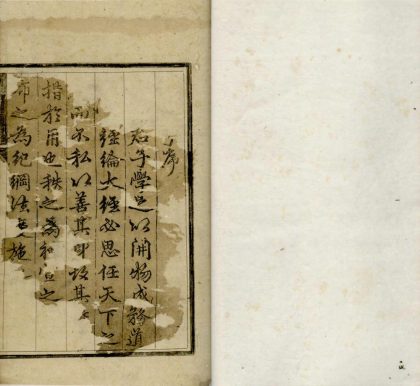 序
君子學足以開物成務道
經綸大經必思任天下之
而不私以善其身故其
措於用也秩之為和宣之
布之為紀綱法度施